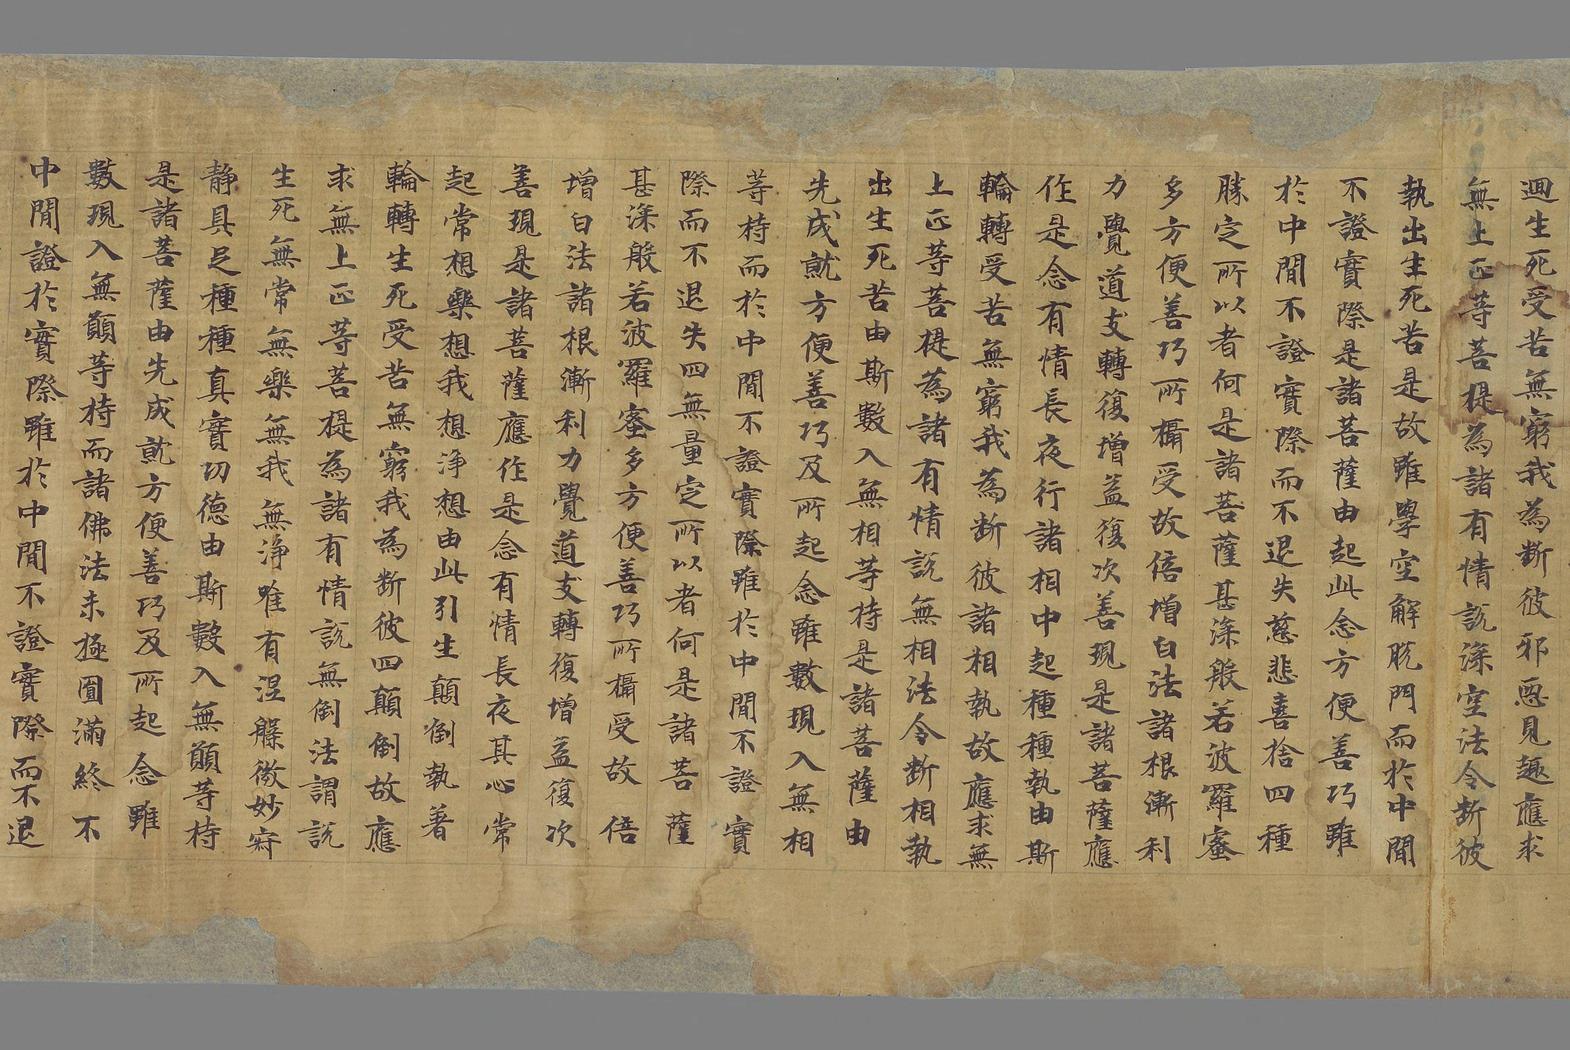 迴生死受苦無窮我為斷彼邪惡見趣應求
無上正等菩提為諸有情說深空法令斷彼
執出生死苦是故雖學空解脫門而於中間
不證實際是諸菩薩由起此念方便善巧雖
於中間不證實際而不退失慈悲喜捨四種
勝定所以者何是諸菩薩甚深般若波羅蜜
多方便善巧所攝受故倍增白法諸根漸利
力覺道支轉復增益復次善現是諸菩薩應
作是念有情長夜行諸相中起種種執由斯
輪轉受苦無窮我為斷彼諸相執故應求無
上正等菩提為諸有情說無相法令斷相執
出生死苦由斯數入無相等持是諸菩薩由
先成就方便善巧及所起念雖數現入無相
等持而於中間不證實際雖於中間不證實
際而不退失四無量定所以者何是諸菩薩
甚深般若波羅蜜多方便善巧所攝受故倍
增白法諸根漸利力覺道支轉復增益復次
善現是諸菩薩應作是念有情長夜其心常
起常想樂想我想淨想由此引生顛倒執著
輪轉生死受苦無窮我為斷彼四顛倒故應
求無上正等菩提為諸有情說無倒法謂說
生死無常無樂無我無淨唯有涅槃微妙寂
靜具足種種真實功德由斯數入無願等持
是諸菩薩由先成就方便善巧及所起念雖
數現入無願等持而諸佛法未極圓滿終不
中間證於實際雖於中間不證實際而不退